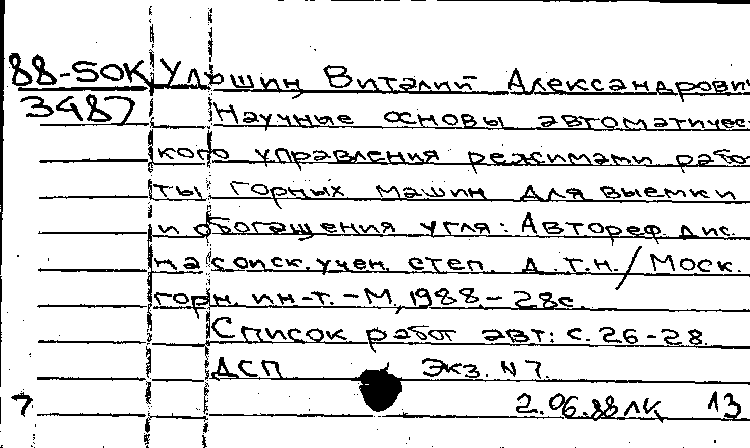 88-50К Улюшин, Виталий Александрови
3487 Научные основы автоматичес
кого управления режимами рабо
ты горных машин для выемки
и обогащения угля: Автореф. дис.
на соиск. учен. степ. д.т.н./Моск.
горн. ин-т. - М, 1988. - 28с.
Список работ авт: с. 26-28.
ДСП Экз. N7.
7 2.06.88ЛК 13